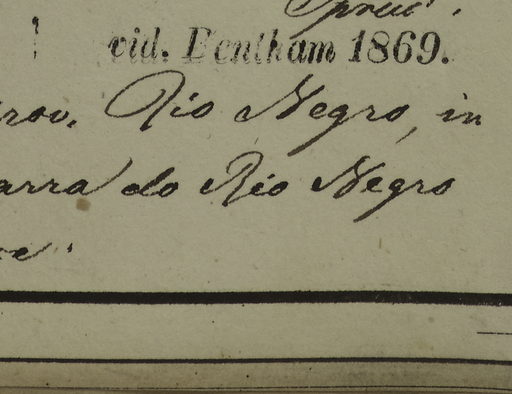 Spruce.
vid. Bentham 1869.
rov. Rio Negro, in
arra do Rio Negro